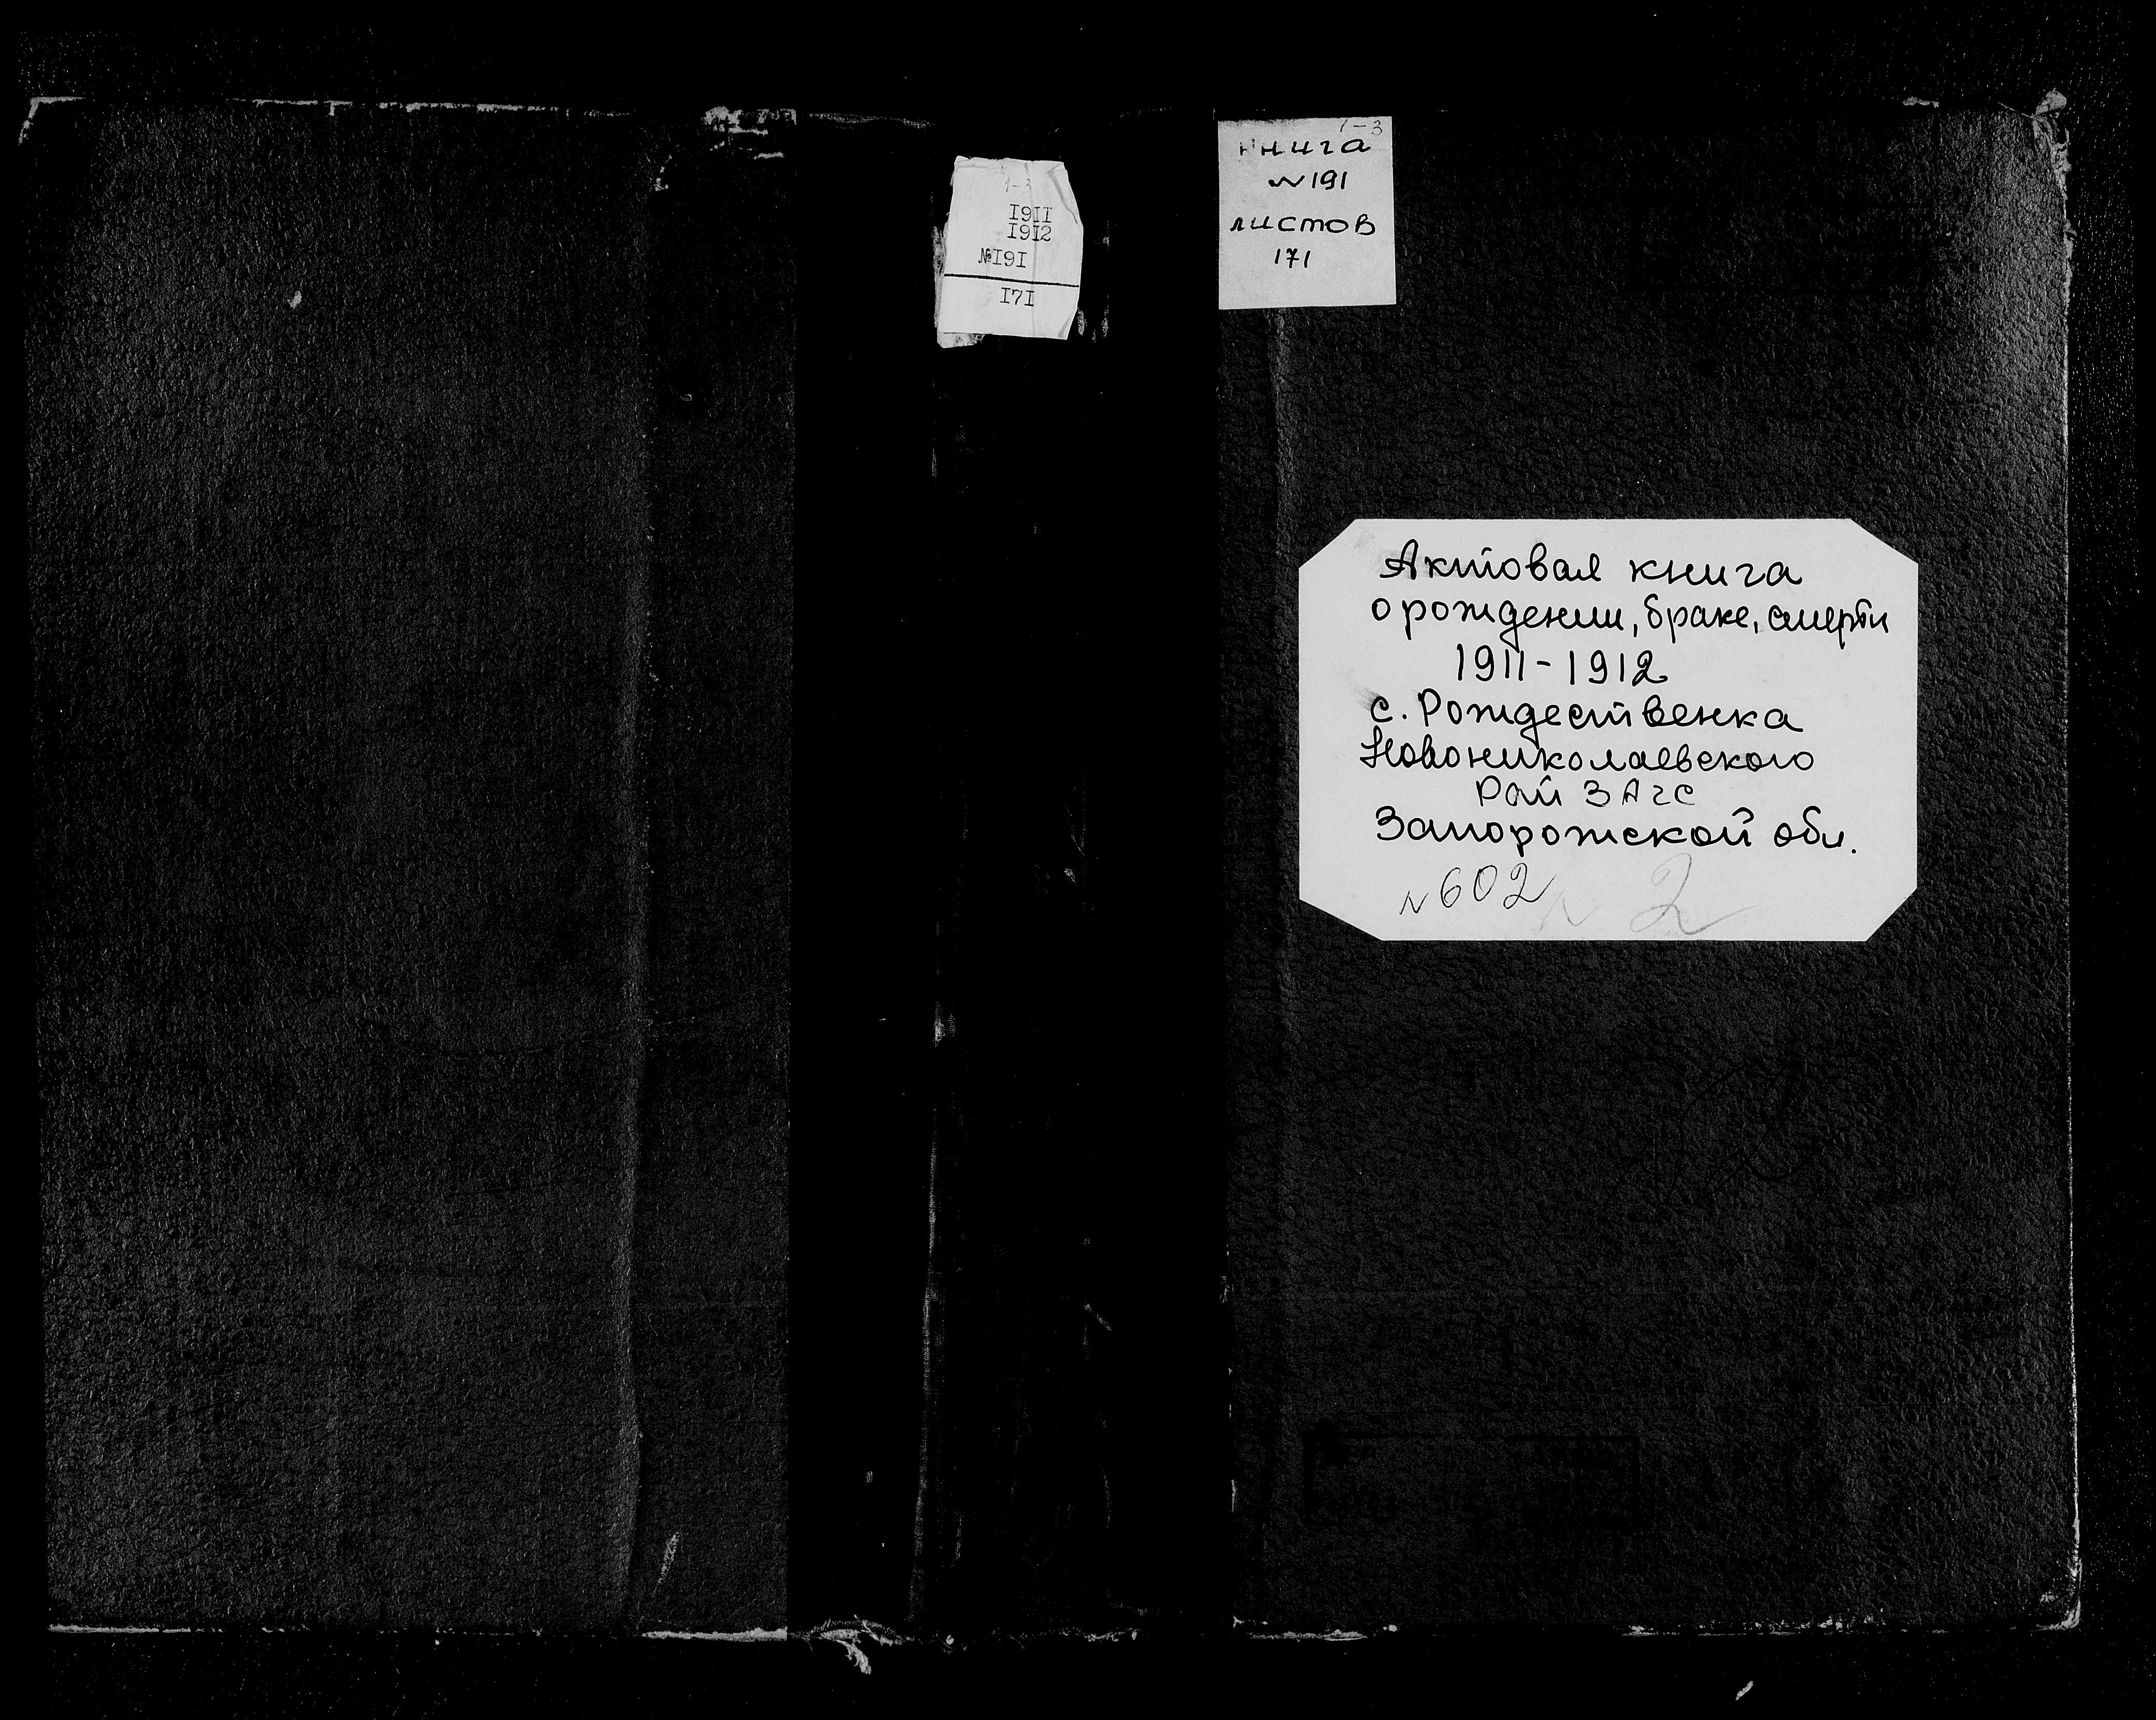 1-3
1911
1912
№191
171
1-3
книга
№191
листов
171
Актовая книга
о рождении, браке, смерти
1911-1912
с. Рождественка
Новониколаевского
Рай ЗАГС
Запорожской обл.
№602 № 2